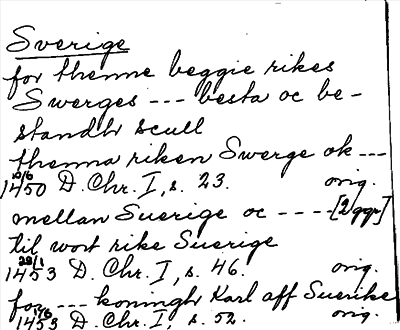 Sverige
for thenne beggie rikes
Swerges --- besta oc be-
standh scull
thenna riken Swerge ok ---
10/6 1450 D. Chr. I, s. 23. orig.
mellan Suerige oc ---- [2 ggr]
til wort rike Suerige
22/1 1453 D. Chr. I, s. 46. orig.
for --- koningh Karl aff Suerike
1453 D. Chr. I, s. 52. orig.